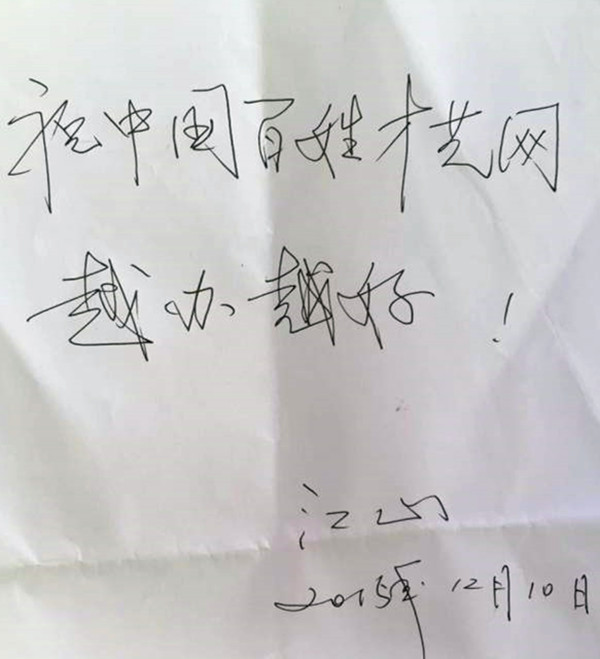 祝中国百姓才艺网
越办越好！
江山
2015年12月10日